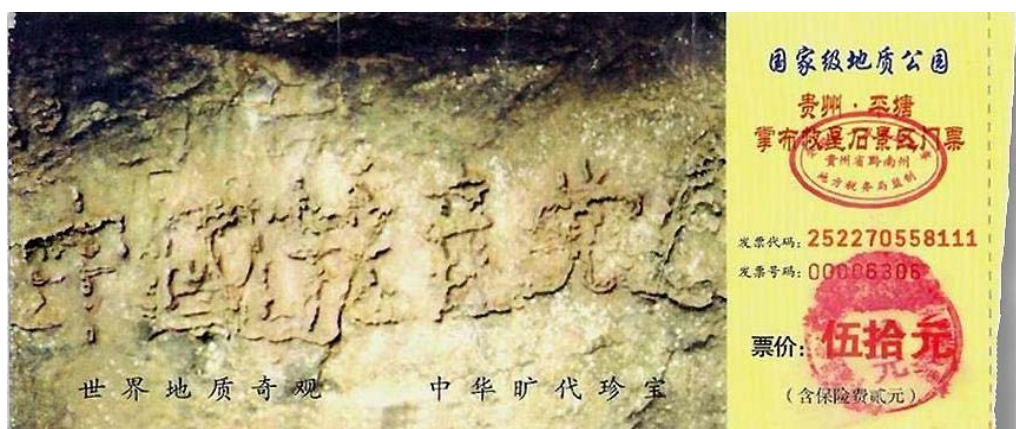 中國共产党亡
世界地质奇观 中华旷代珍宝
国家级地质公园
贵州·平塘
掌布救星石景区门票
贵州省黔南州
地方税务局监制
发票代码：252270558111
发票号码：00006306
票价：伍拾元
元
（含保险费贰元）